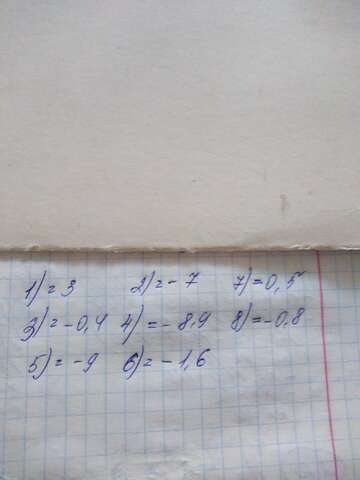 1) = 3 2) = - 7 7) = 0,5
3) = -0,4 4) = - 8,9 8) = -0,8
5) = -9 6) = - 1,6